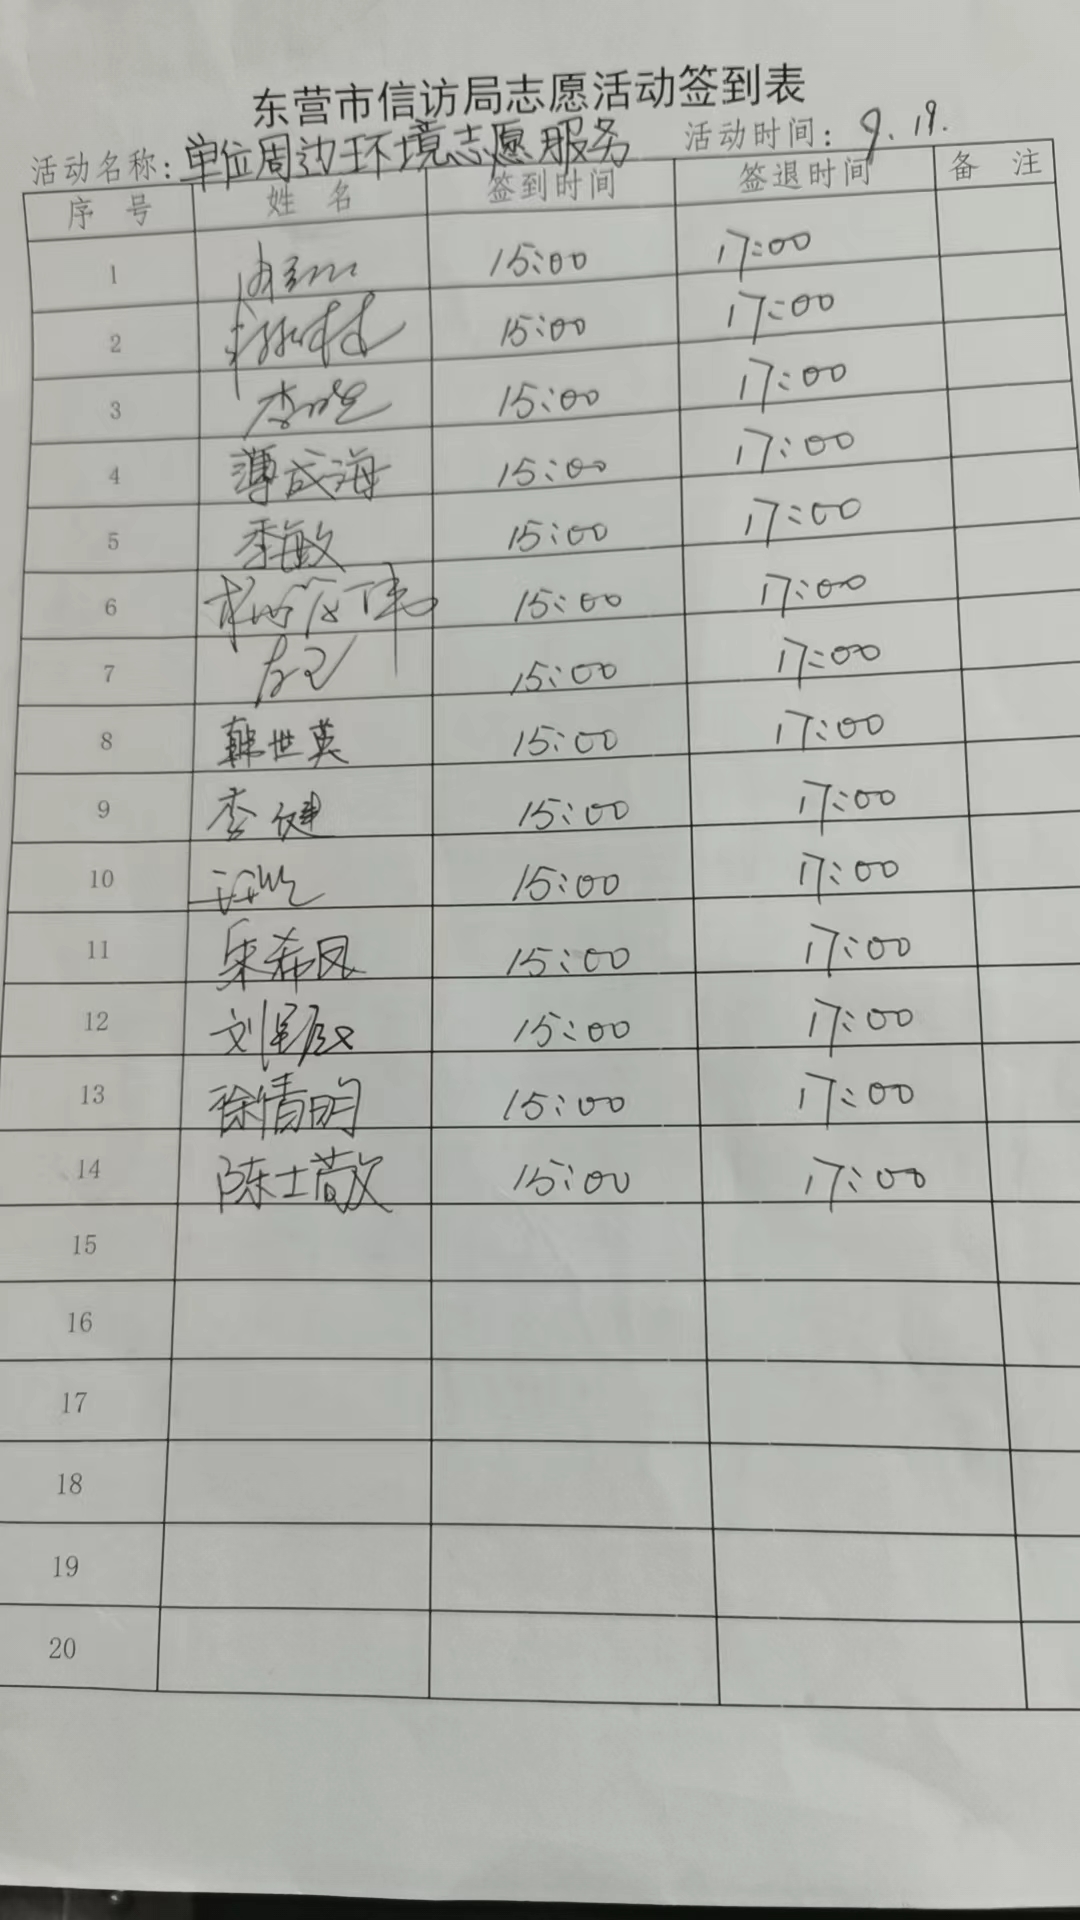 东营市信访局志愿活动签到表
活动名称：单位周边环境志愿服务 活动时间：9.19.
序 号 姓 名 签到时间 签退时间 备 注
1 15:00 17:00
2 15:00 17:00
3 李 15:00 17:00
4 薄成海 15:00 17:00
5 季敏 15:00 17:00
6 15:00 17:00
7 15:00 17:00
8 韩世英 15:00 17:00
9 李健 15:00 17:00
10 15:00 17:00
11 宋希凤 15:00 17:00
12 刘 15:00 17:00
13 徐倩昀 15:00 17:00
14 陈士敬 15:00 17:00
15
16
17
18
19
20